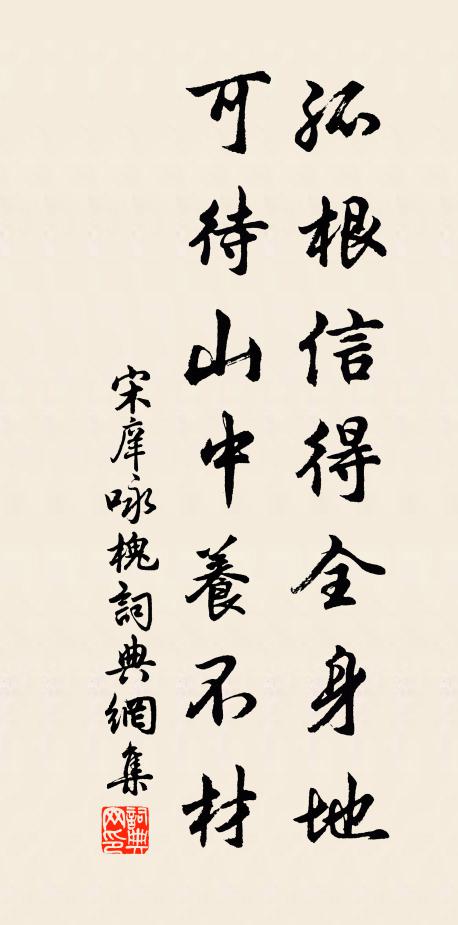 孤根信得全身地
可待山中養不材
宋庠咏槐詞典網集
詞典网印